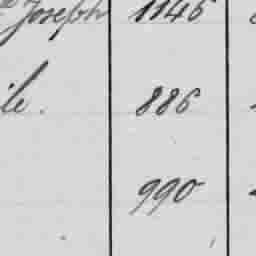 Joseph 1146
ile. 886
990